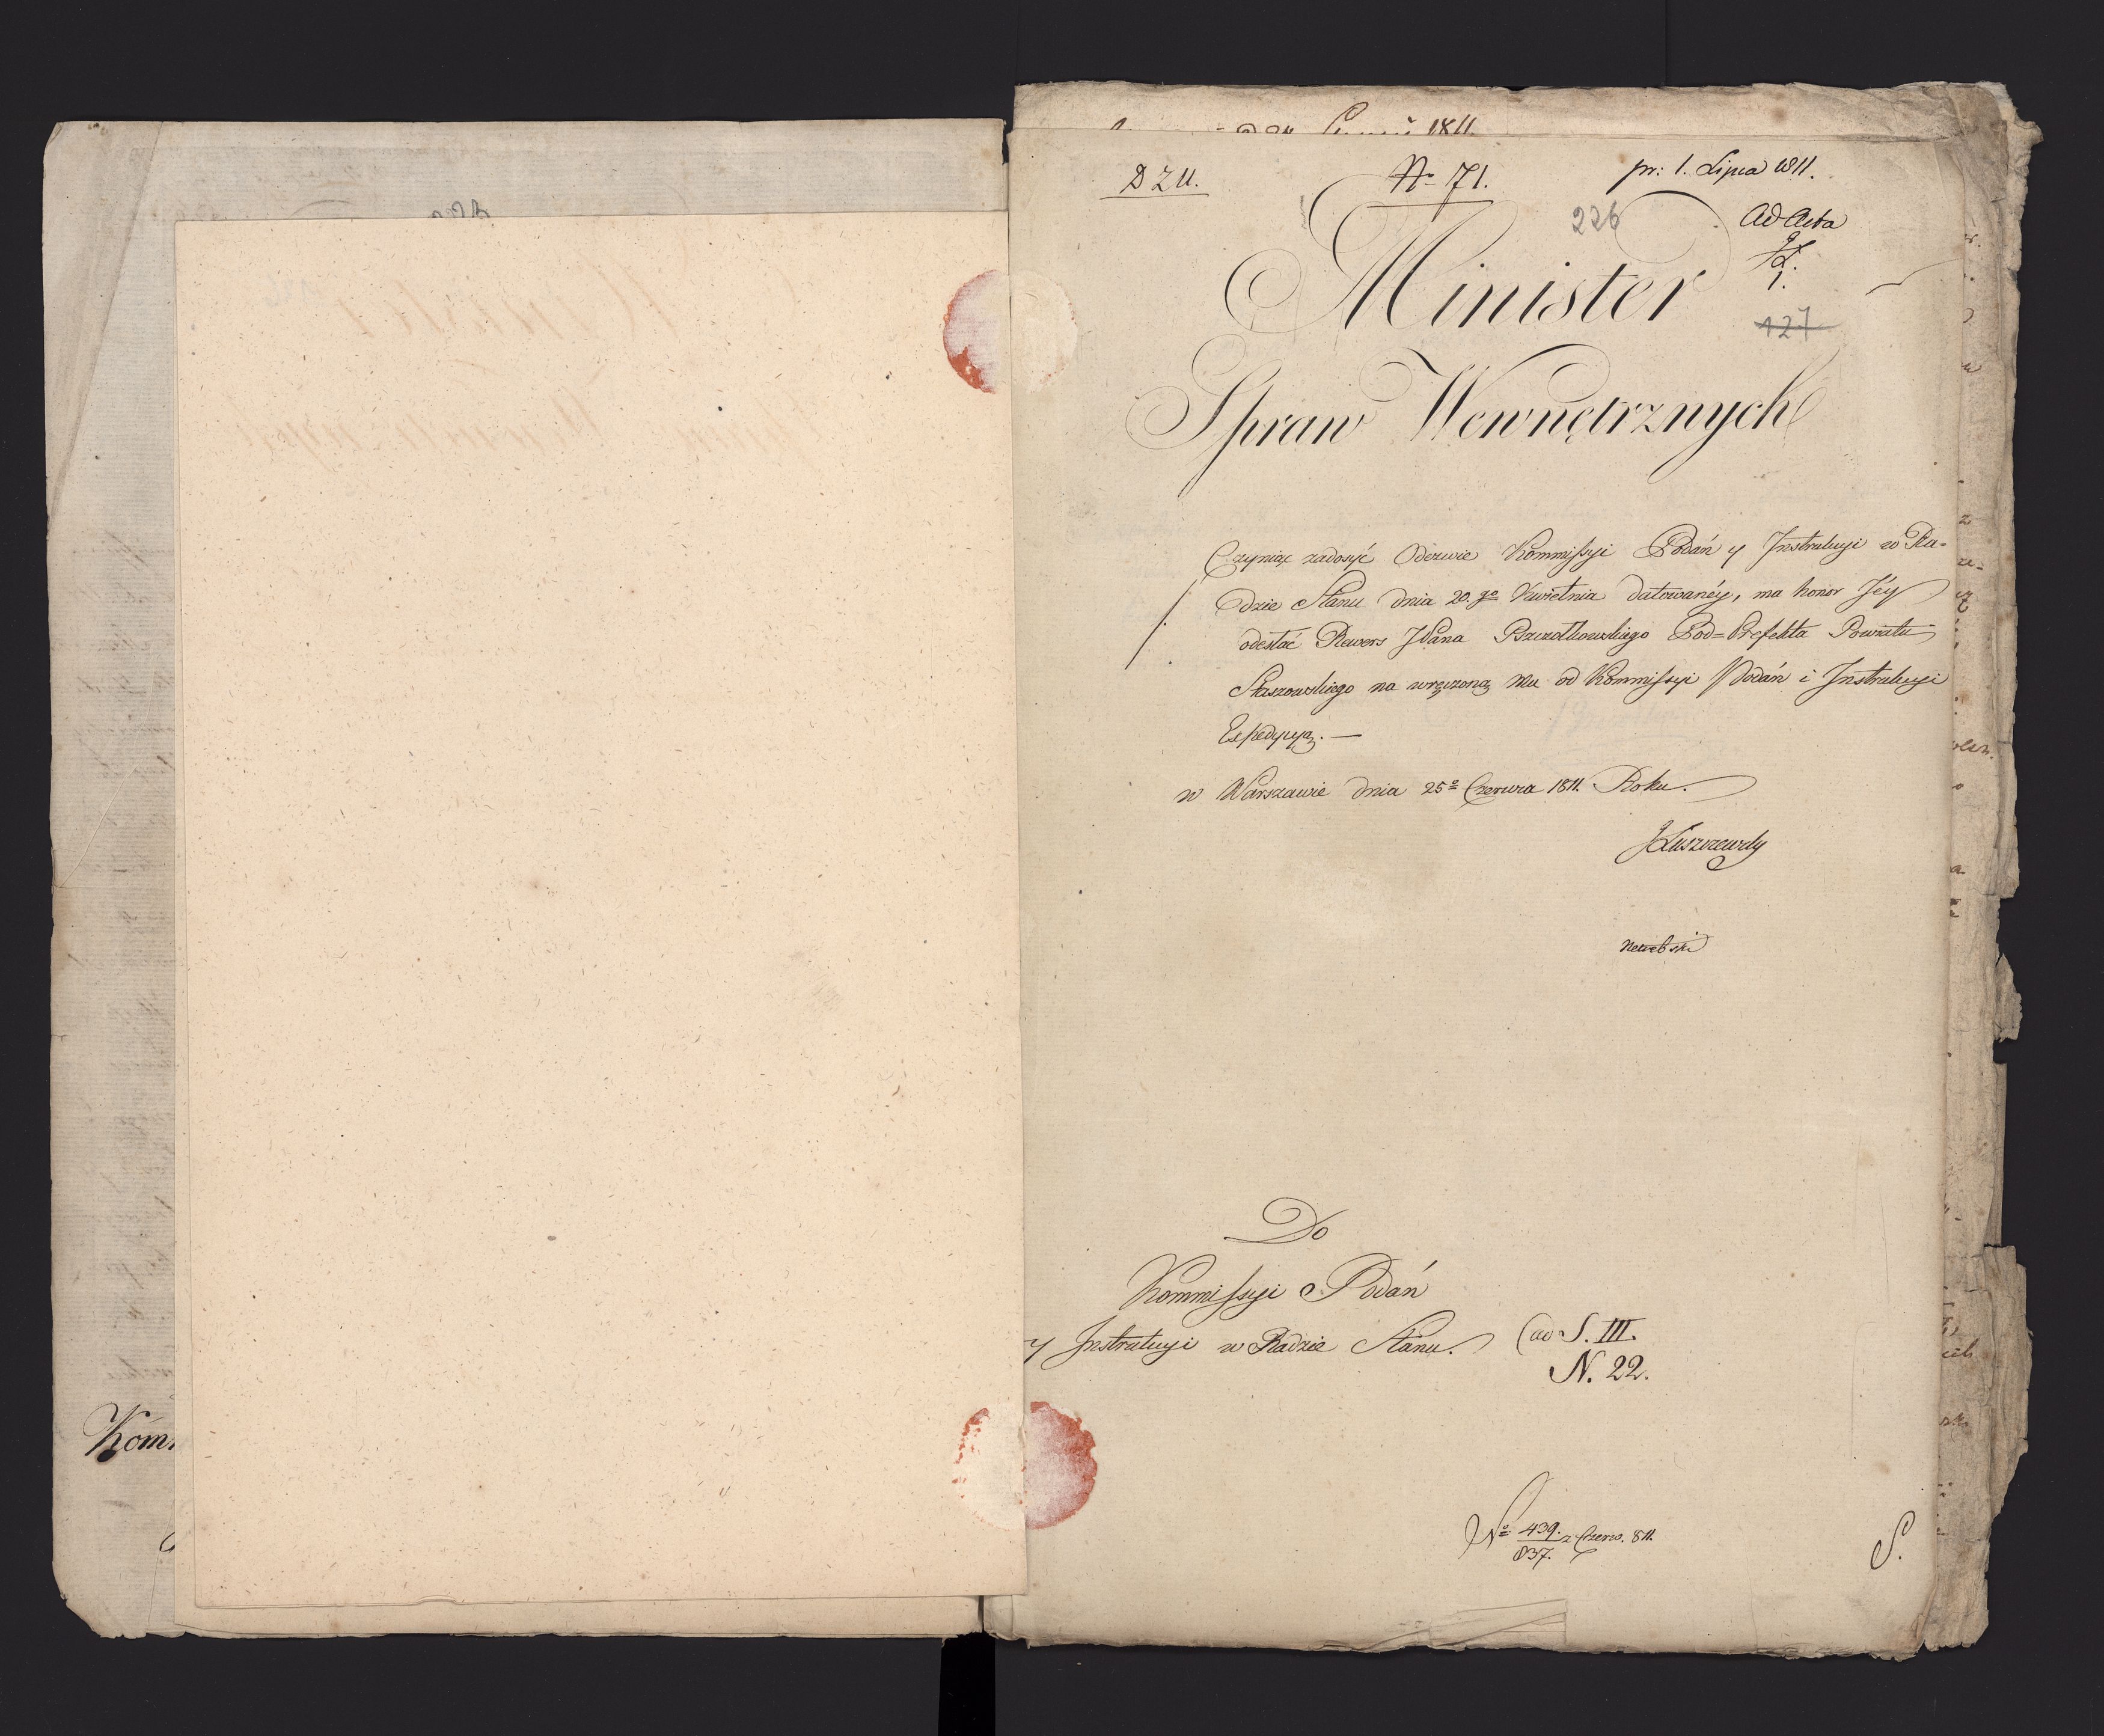 1811.
D Z U.
No 71.
pr: 1. Lipca 1811.
226
Ad Acta
127
Minister
Spraw Wewnętrznych
Czyniąc zadosyć Odezwie Kommissyi Podań y Instrukcyi w Ra-
dzie Stanu dnia 20.go Kwietnia datowanéy, ma honor Jéy
odesłać Rewers JPana Pod-Prefekta Powiatu
Staszowskiego na wręczoną mu od Kommissyi Podań i Instrukcyi
Expedycyą. —
w Warszawie dnia 25o Czerwca 1811. Roku.
JŁuszczewsky
Do
Kommissyi Podań
y Instrukcyi w Radzie Stanu.
(ad S. III.
N. 22.
No 439./837. z Czerw. 811.
S.
Kom